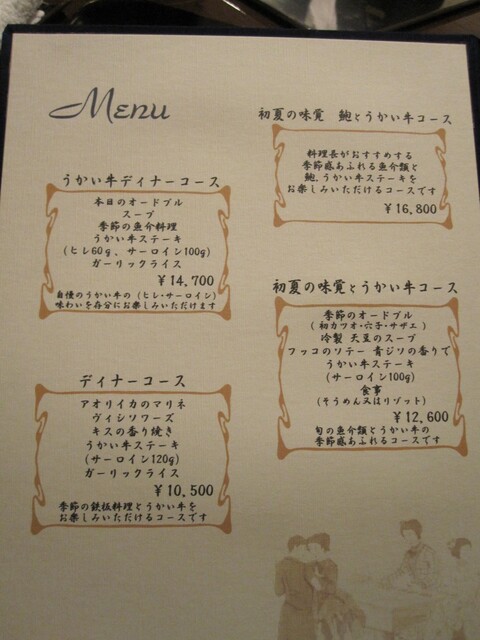 Menu
うかい牛ディナーコース
本日のオードブル
スープ
季節の魚介料理
うかい牛ステーキ
(ヒレ60g、サーロイン100g)
ガーリックライス
¥14,700
自慢のうかい牛の(ヒレ・サーロイン)
味わいを存分にお楽しみいただけます
ディナーコース
アオリイカのマリネ
ヴィシソワーズ
キスの香り焼き
うかい牛ステーキ
(サーロイン120g)
ガーリックライス
¥10,500
季節の鉄板料理とうかい牛を
お楽しみいただけるコースです
初夏の味覚 鮑とうかい牛コース
料理長がおすすめする
季節感あふれる魚介類と
鮑、うかい牛ステーキを
お楽しみいただけるコースです
¥16,800
初夏の味覚とうかい牛コース
季節のオードブル
(初カツオ・穴子・サザエ)
冷製 天豆のスープ
フッコのソテー 青ジソの香りで
うかい牛ステーキ
(サーロイン100g)
食事
(そうめん又はリゾット)
¥12,600
旬の魚介類とうかい牛の
季節感あふれるコースです